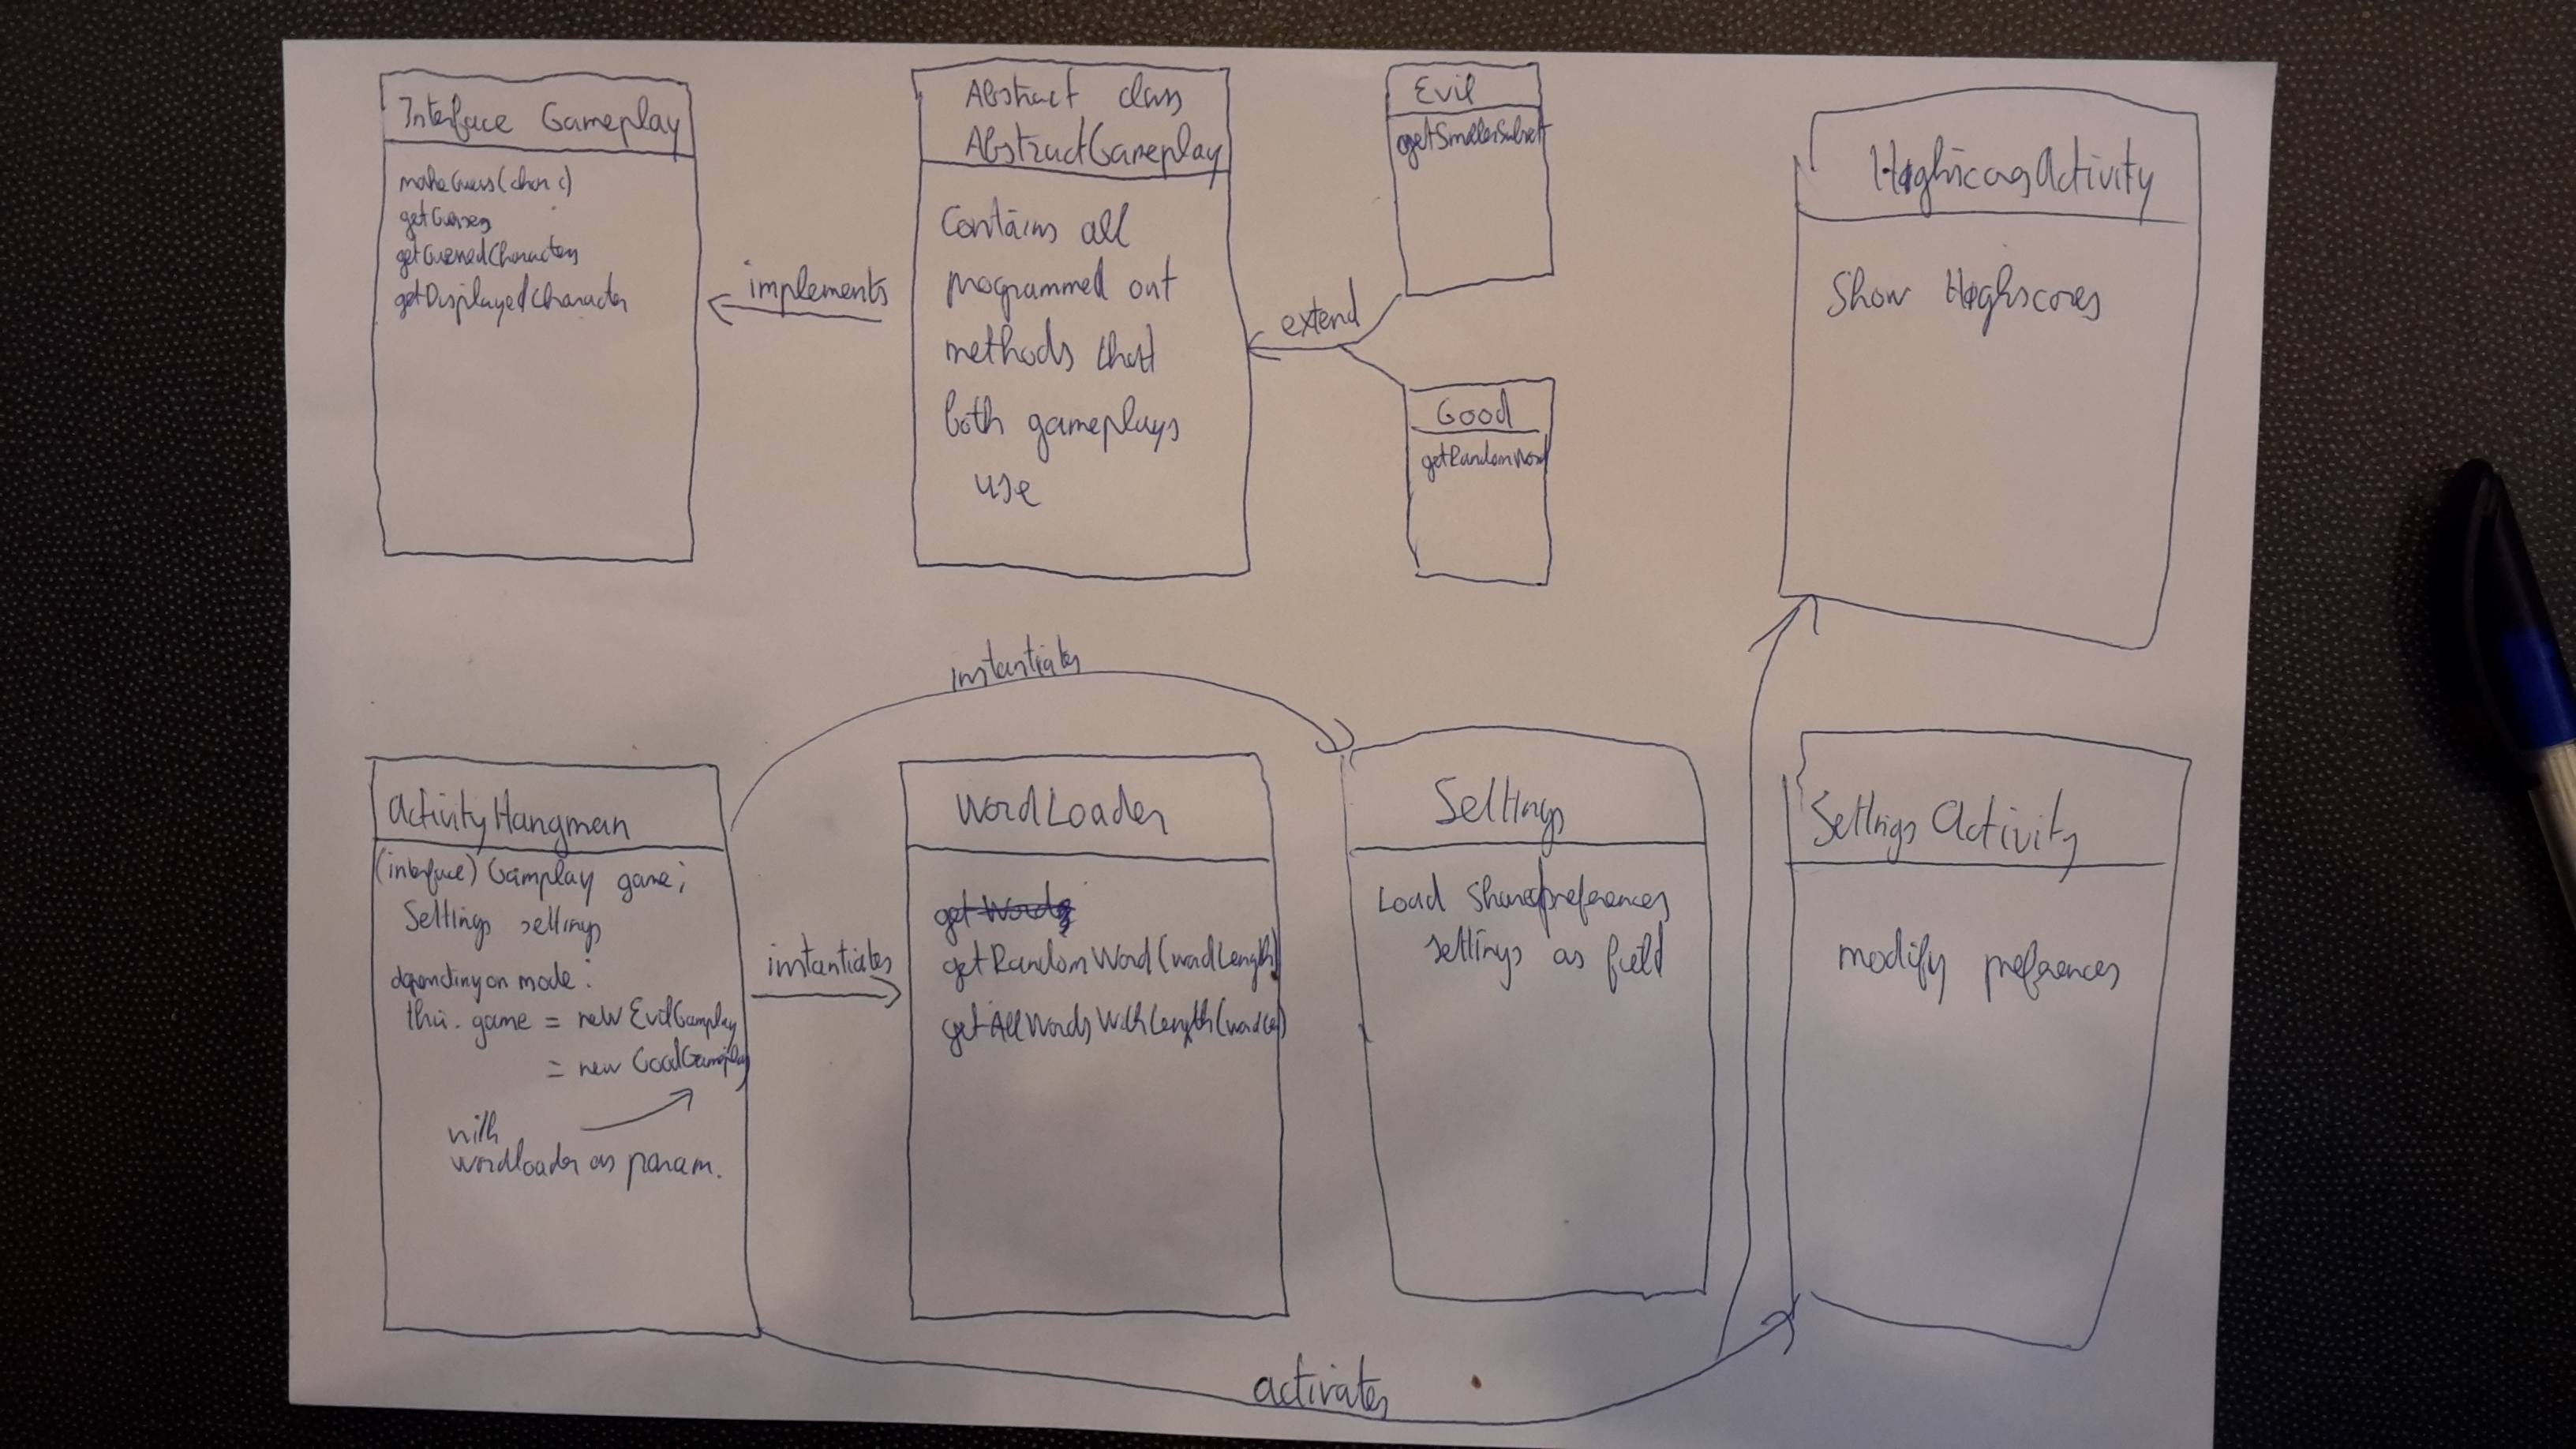 Interface Gameplay
makeGuess(char c)
getGuesses
getGuessedCharacters
getDisplayedCharacter
implements
Abstract class
AbstractGameplay
Contains all
programmed out
methods that
both gameplays
use
extend
Evil
getSmallerSubset
Good
getRandomWord
HighscoreActivity
Show Highscores
activityHangman
(interface) Gameplay game;
Settings settings
depending on mode.
this.game = new EvilGameplay
= new GoodGameplay
with
wordloader as param.
instantiates
instantiates
WordLoader
getWords
getRandomWord(wordLength)
getAllWordsWithLength(
Settings
Load Sharedpreferences
settings as field
activates
Settings Activity
modify preferences